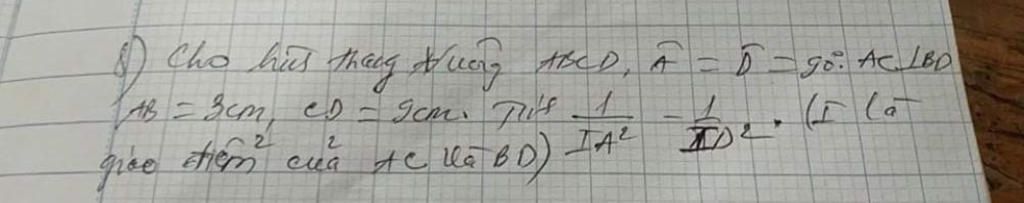 8) Cho hình thang vuông ABCD, Â = D̂ = 90°. AC ⊥ BD
AB = 3cm, CD = 9cm. Tính 1/IA² - 1/ID². (I là
giao điểm² của² AC và BD)